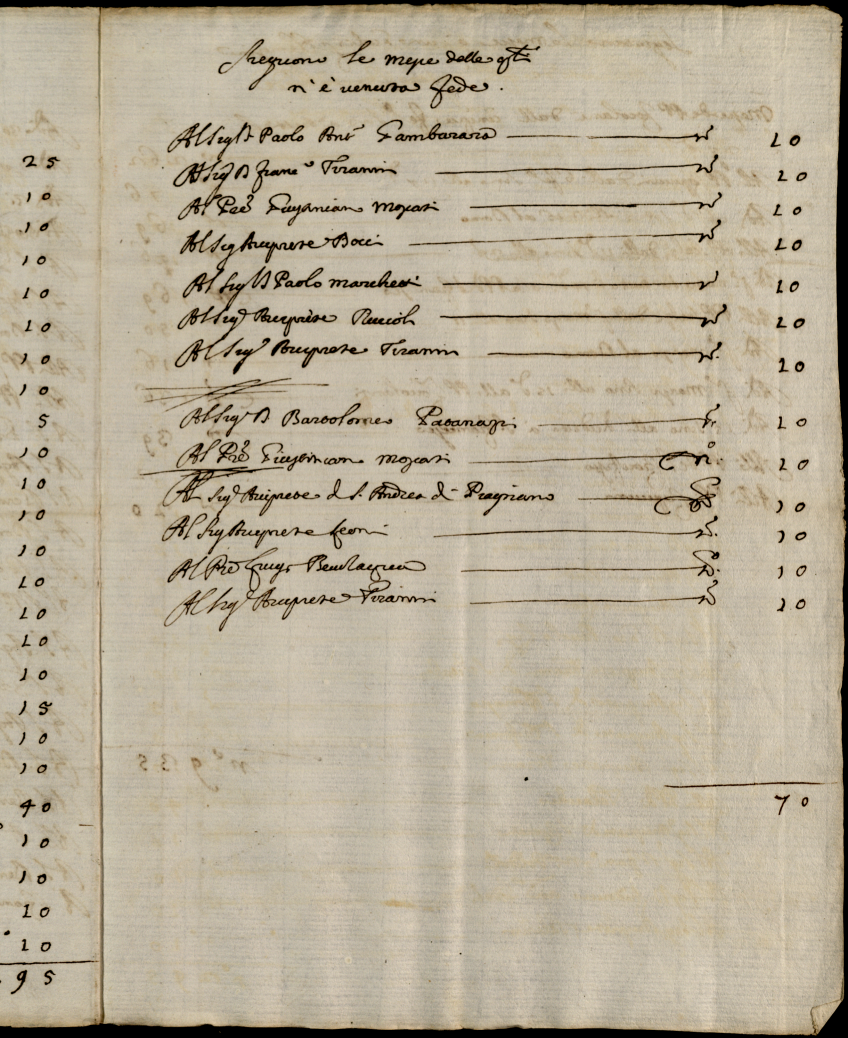 25
10
10
10
10
10
10
10
5
10
10
10
10
10
10
10
10
15
10
10
40
10
10
10
10
95
Seguono le messe delle q.li
n'è venuta fede.
Al Sig.r D Paolo Ant.o Gambararo n.o 10
Al Sig.r D Franc.o Tiranni n.o 10
Al Pre 10
Al Sig Arciprete Bocci n.o 10
Al Sig.r D Paolo Marchetti n.o 10
Al Sig.r Arciprete n.o 10
Al Sig.r Arciprete Tiranni n.o 10
Al Sig.r D Bartolomeo n.o 10
Al Pre n.o 10
Al Sig.r Arciprete d S. Andrea di n.o 10
Al Sig Arciprete Leoni n.o 10
Al Pre Luigi n.o 10
Al Sig.r Arciprete Tiranni n.o 10
70
n.o 935